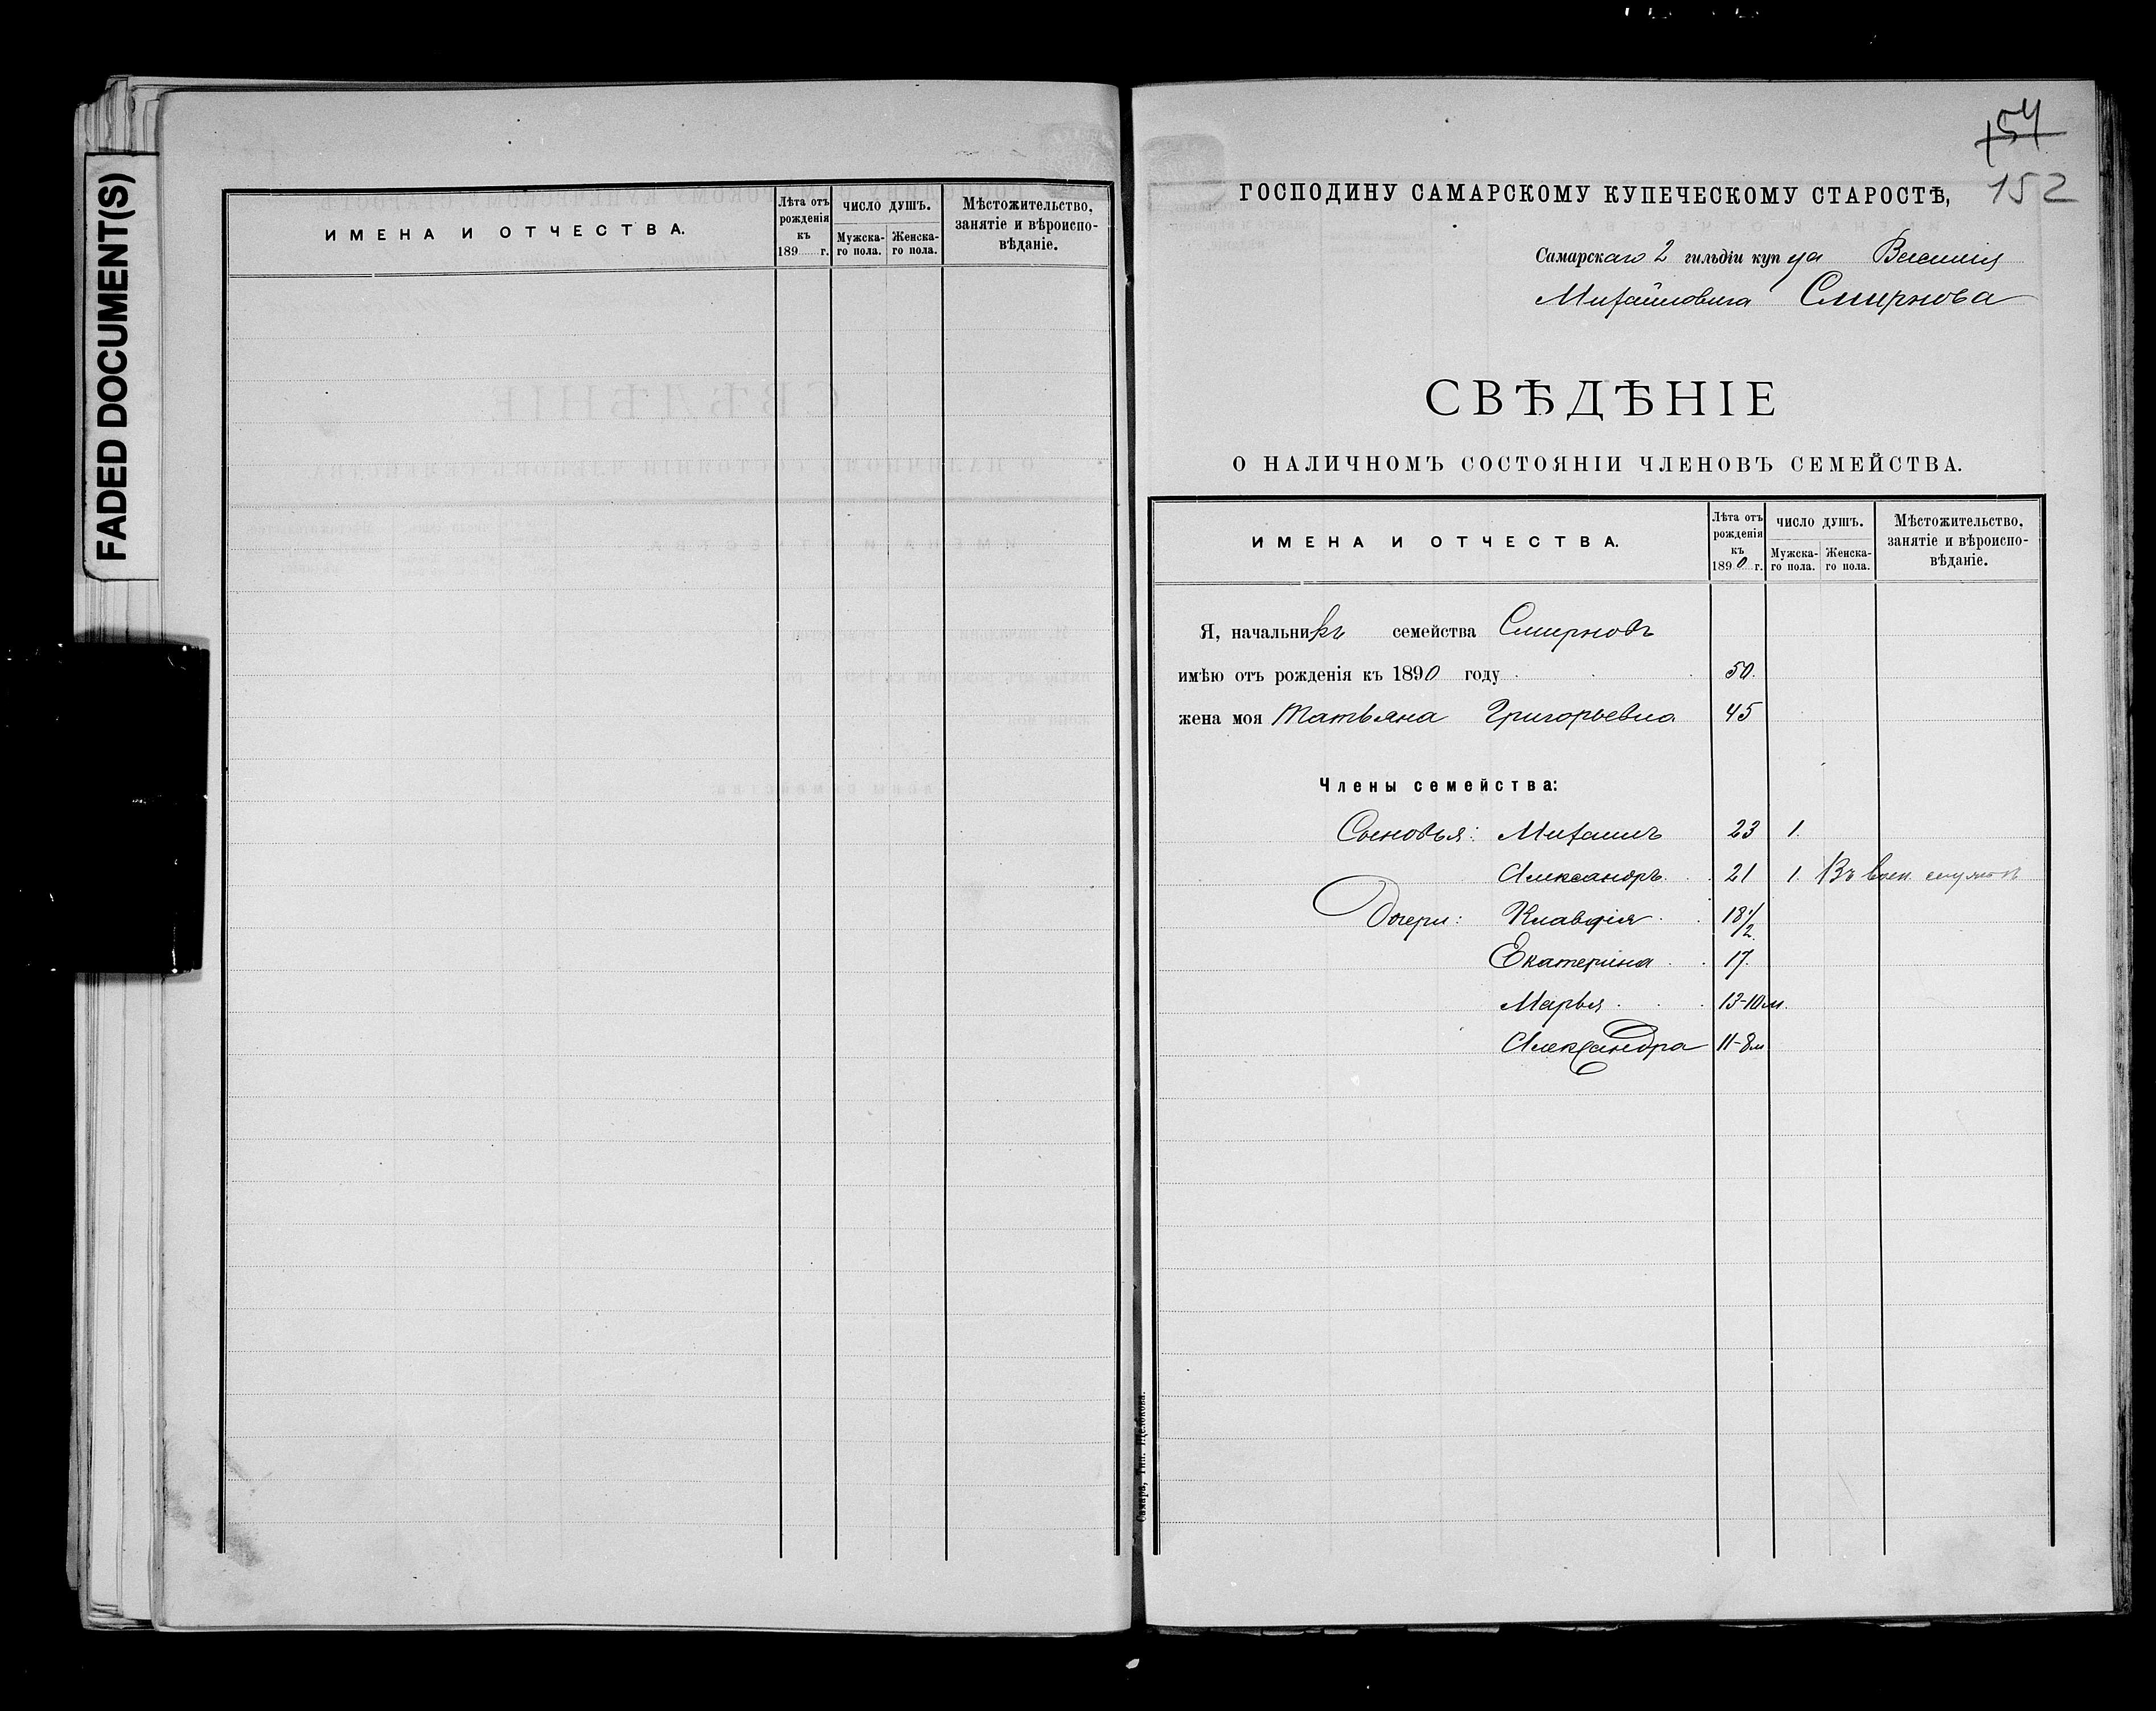 FADED DOCUMENT(S)
ИМЕНА И ОТЧЕСТВА.
Лѣта отъ рожденія къ 189 г.
ЧИСЛО ДУШЪ.
Мужска-го пола.
Женска-го пола.
Мѣстожительство, занятіе и вѣроиспо-вѣданіе.
154
152
ГОСПОДИНУ САМАРСКОМУ КУПЕЧЕСКОМУ СТАРОСТѢ,
Самарскаго 2 гильдіи купца Василія
Михайловича Смирнова
СВѢДѢНІЕ
О НАЛИЧНОМЪ СОСТОЯНІИ ЧЛЕНОВЪ СЕМЕЙСТВА.
ИМЕНА И ОТЧЕСТВА.
Лѣта отъ рожденія къ 1890 г.
ЧИСЛО ДУШЪ.
Мужска-го пола.
Женска-го пола.
Мѣстожительство, занятіе и вѣроиспо-вѣданіе.
Я, начальникъ семейства Смирновъ
имѣю отъ рожденія къ 1890 году 50.
жена моя Татьяна Григорьевна 45
Члены семейства:
Сыновья: Михаилъ 23 1.
Александръ 21 1. Въ воен. службѣ
Дочери: Клавдія 18 1/2
Екатерина 17.
Марья 13-10 м.
Александра 11-8 м
Самара, Тип. Щелокова.